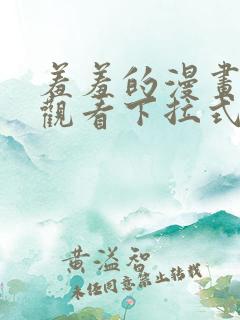 羞羞的漫畫
觀看下拉式
黄溢智
未经同意禁止转载